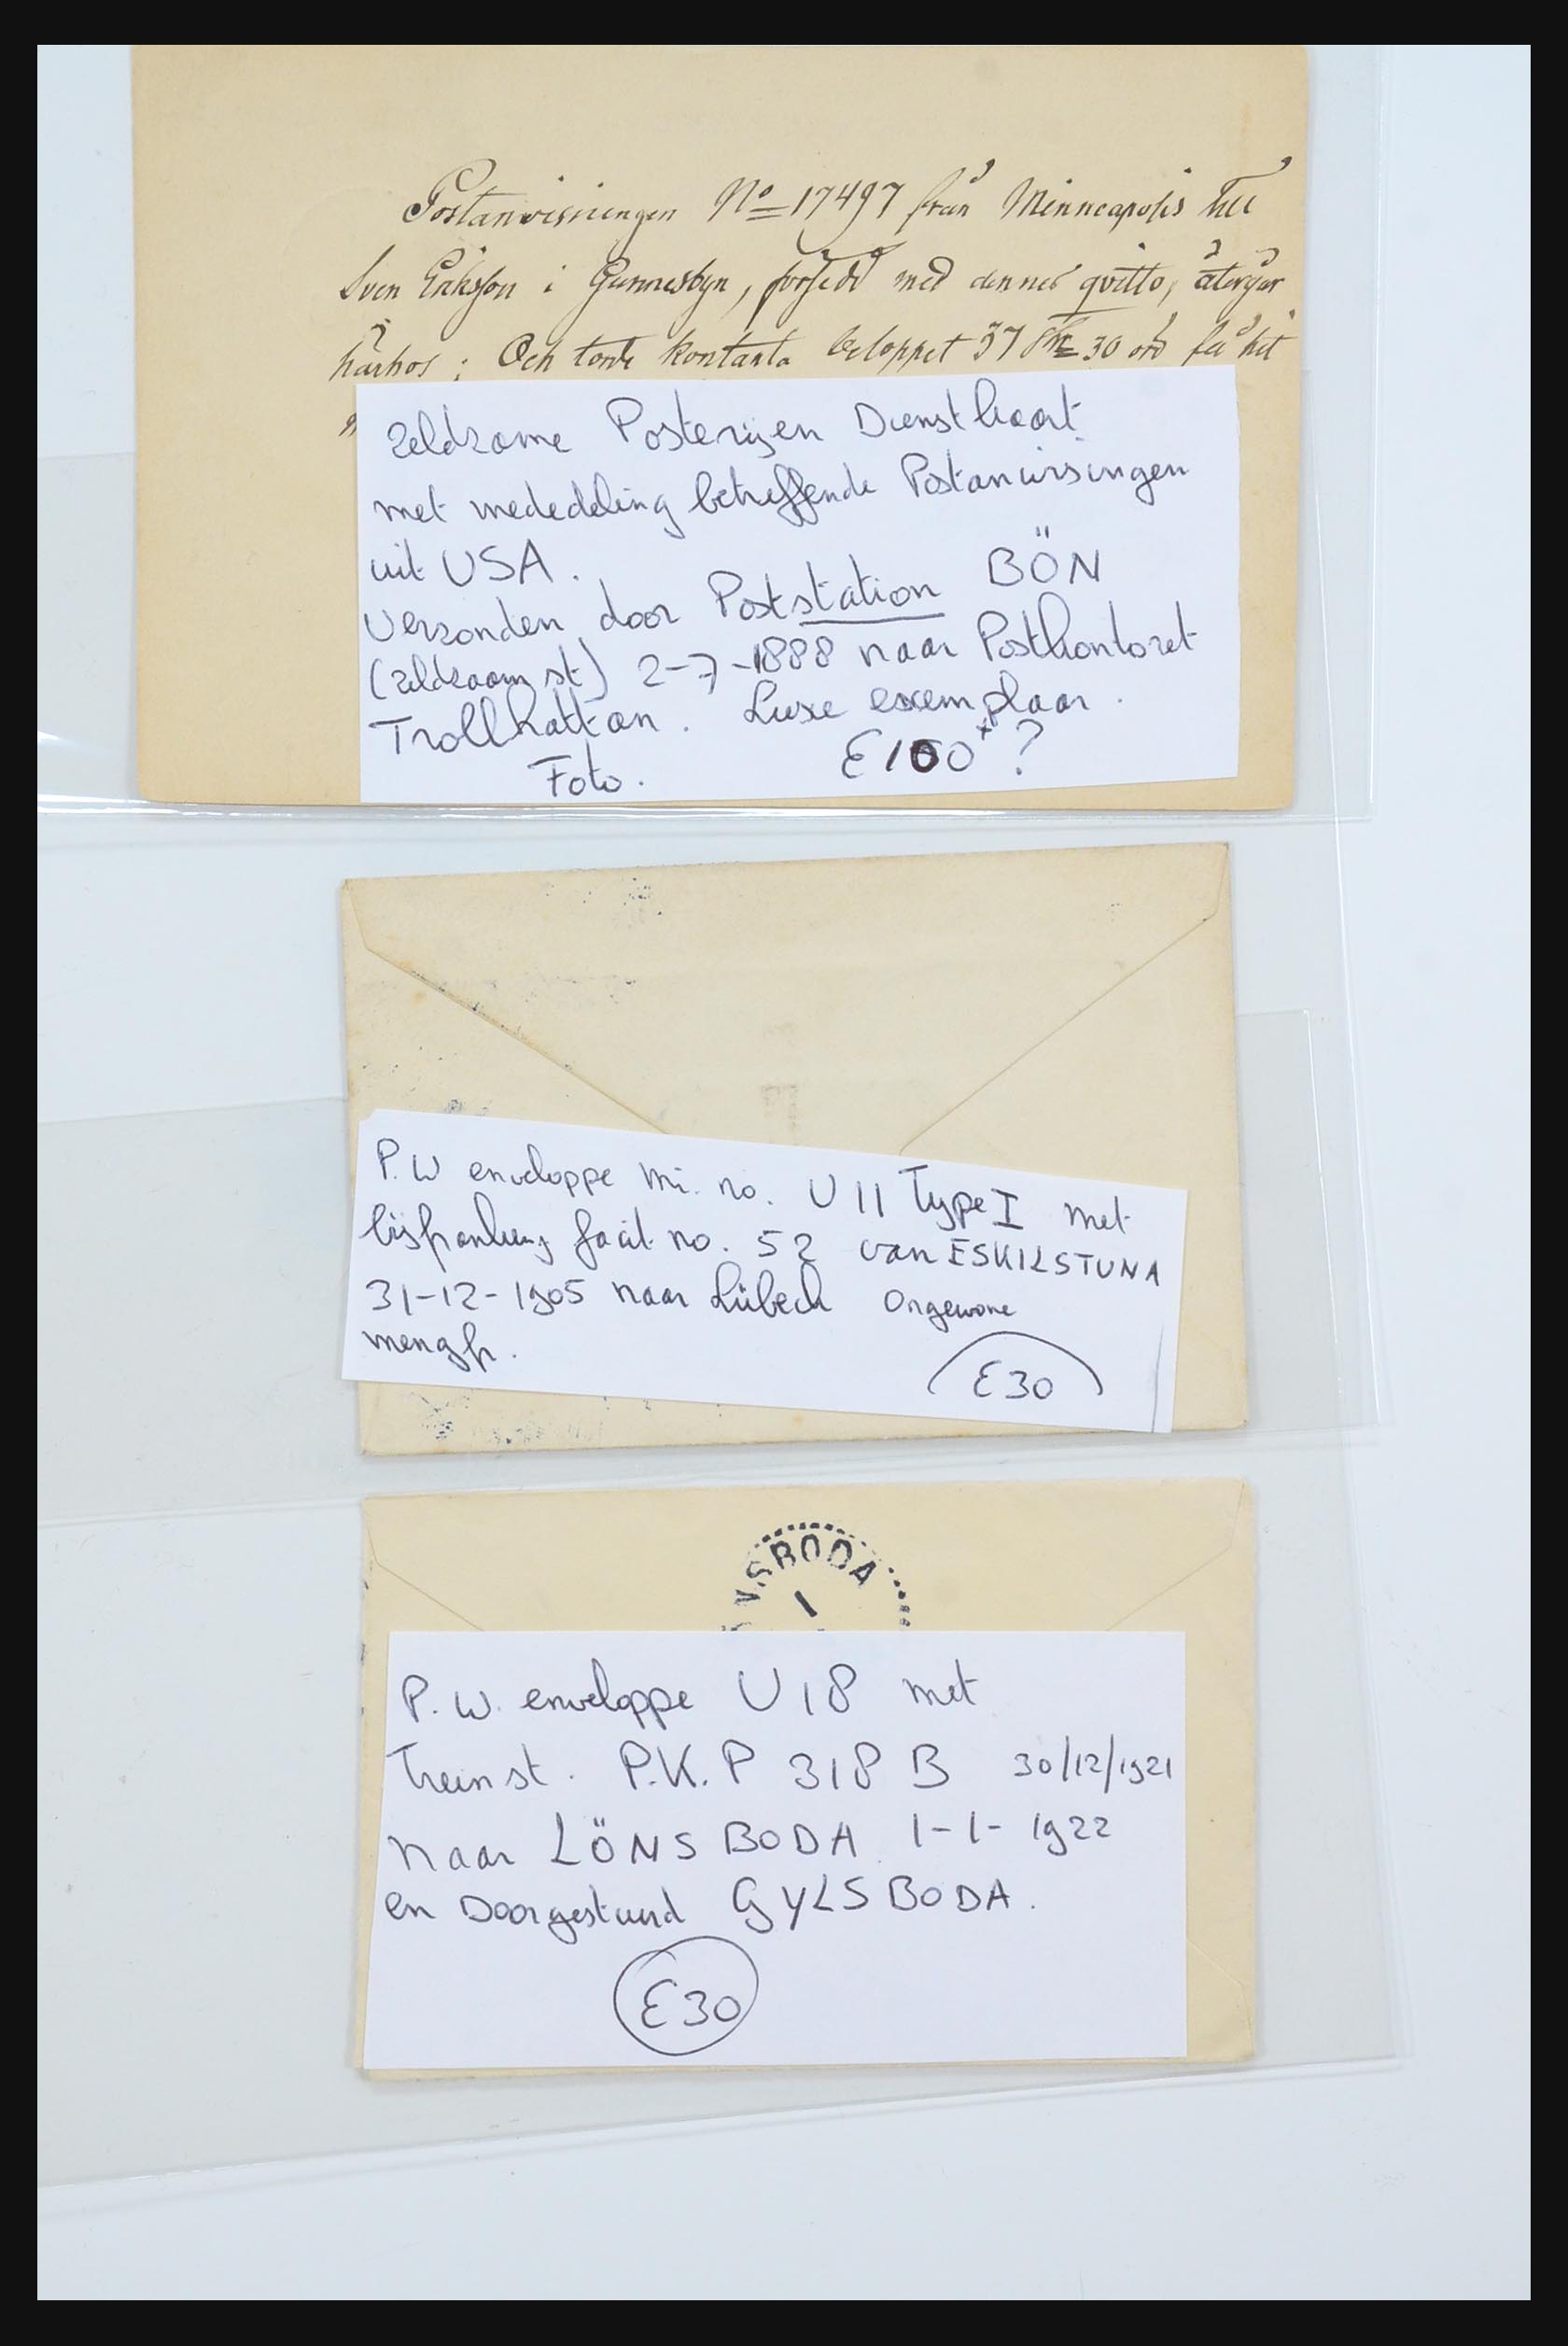 Postanvisningen No 17497 från Minneapolis till
Sven Eriksson i Gunnesbyn, försedd med dennes qvitto, återgår
härhos; Och torde kontanta beloppet 37 Kr 30 öre få hit
Zeldzame Posterijen Dienstkaart
met mededeling betreffende Postanwisingen
uit USA.
Verzonden door Poststation BÖN
(zeldzaam st) 2-7-1888 naar Postkontoret
Trollhattan. Luxe exemplaar.
Foto. €100 x ?
P.W enveloppe Mi. no. U 11 Type I met
bijfrankering facit no. 52 van ESKILSTUNA
31-12-1905 naar Lübeck Ongewone
mengfr.
€30
VSBODA
1
P.W. enveloppe U 18 met
Treinst. P.K.P 318 B 30/12/1921
naar LÖNSBODA 1-1-1922
en Doorgestuurd GYLSBODA.
€30